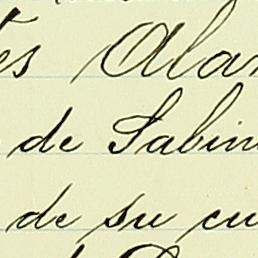 es Ala
de Sabin
de su cu